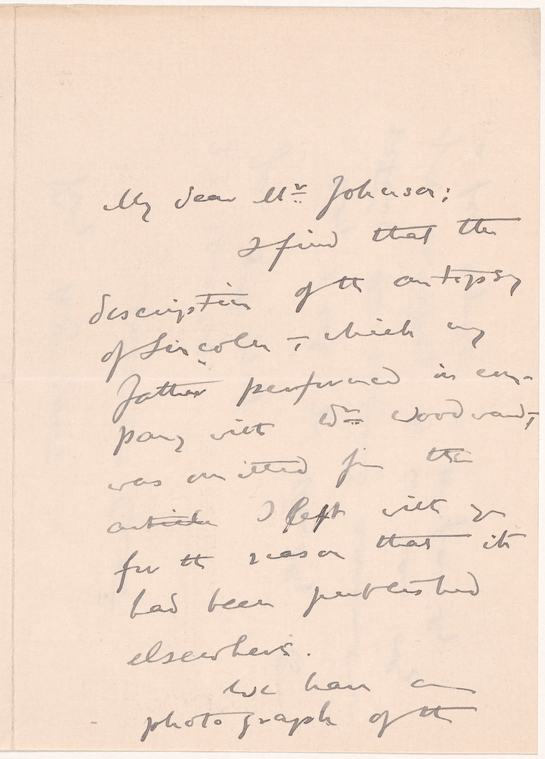 My dear Mr Johnson:
I find that the
description of the autopsy
of Lincoln – which my
father performed in com-
pany with Dr Woodward,
was omitted from the
article I left with you
for the reason that it
had been published
elsewhere.
We have a
photograph of the